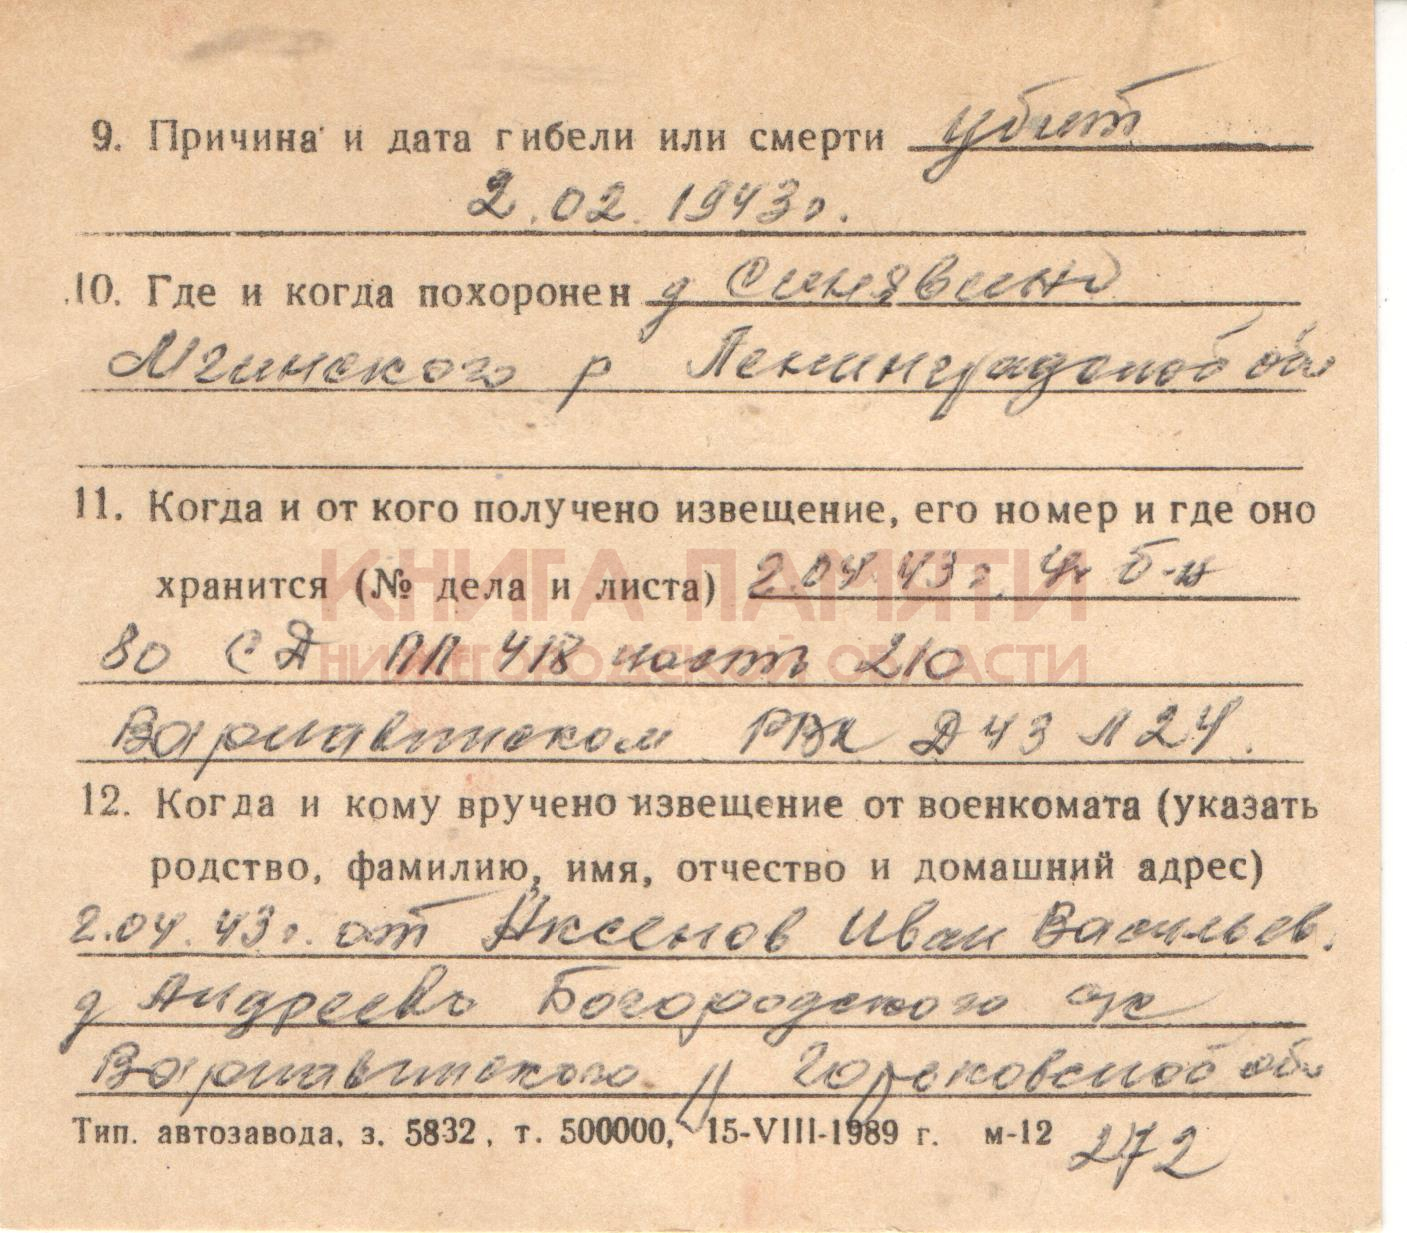 9. Причина и дата гибели или смерти убит
2.02.1943г.
10. Где и когда похоронен д Синявино
Мгинского р Ленинградской обл
11. Когда и от кого получено извещение, его номер и где оно
хранится (№ дела и листа) 2.04.43г. Ч б-н
КНИГА ПАМЯТИ
80 СД ПП 418 часть 210
НИЖЕГОРОДСКОЙ ОБЛАСТИ
Варнавинском РВК Д 43 Л 24.
12. Когда и кому вручено извещение от военкомата (указать
родство, фамилию, имя, отчество и домашний адрес)
2.04.43г. от Аксенов Иван Васильев.
д Андреево Богородского с/с
Варнавинского р Горьковской обл
Тип. автозавода, з. 5832, т. 500000, 15-VIII-1989 г. м-12
272